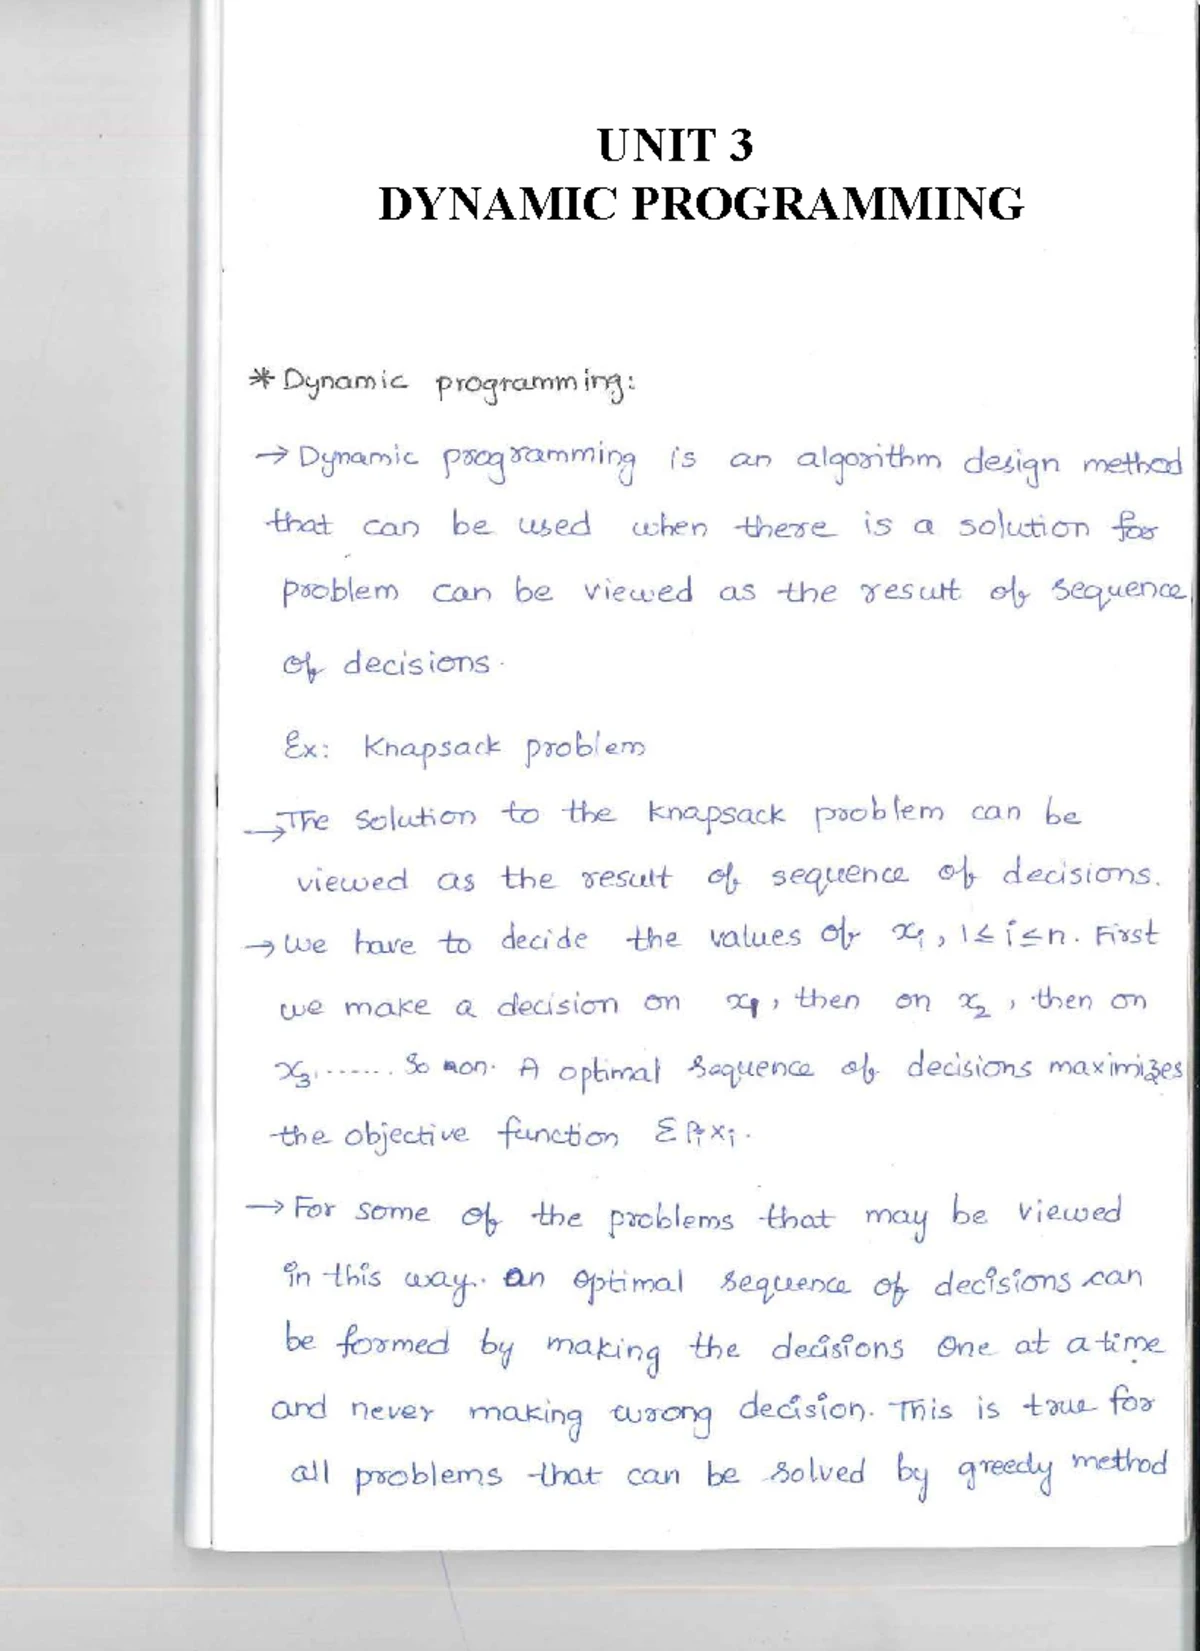 UNIT 3
DYNAMIC PROGRAMMING
* Dynamic programming:
→ Dynamic programming is an algorithm design method
that can be used when there is a solution for
problem can be viewed as the result of sequence
of decisions.
Ex: Knapsack problem
→ The solution to the knapsack problem can be
viewed as the result of sequence of decisions.
→ We have to decide the values of xᵢ, 1≤i≤n. First
we make a decision on x₁, then on x₂, then on
x₃....... So on. A optimal sequence of decisions maximizes
the objective function Σ Pᵢxᵢ.
→ For some of the problems that may be viewed
in this way. an optimal sequence of decisions can
be formed by making the decisions one at a time
and never making wrong decision. This is true for
all problems that can be solved by greedy method